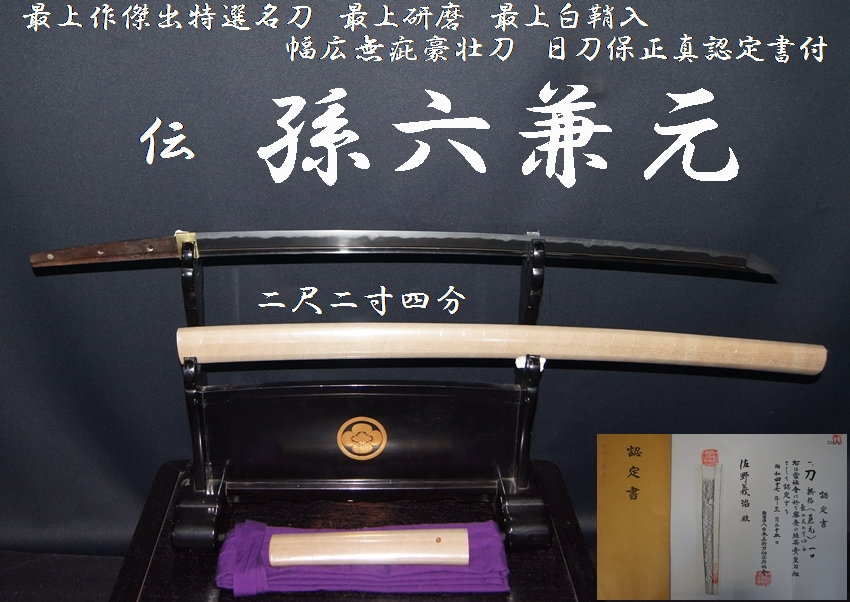 最上作傑出特選名刀　最上研磨　最上白鞘入
幅広無疵豪壮刀　日刀保正真認定書付
伝　孫六兼元
二尺二寸四分
認定書
認定書
一、刀 無銘（兼元） 一口
佐野義治 殿